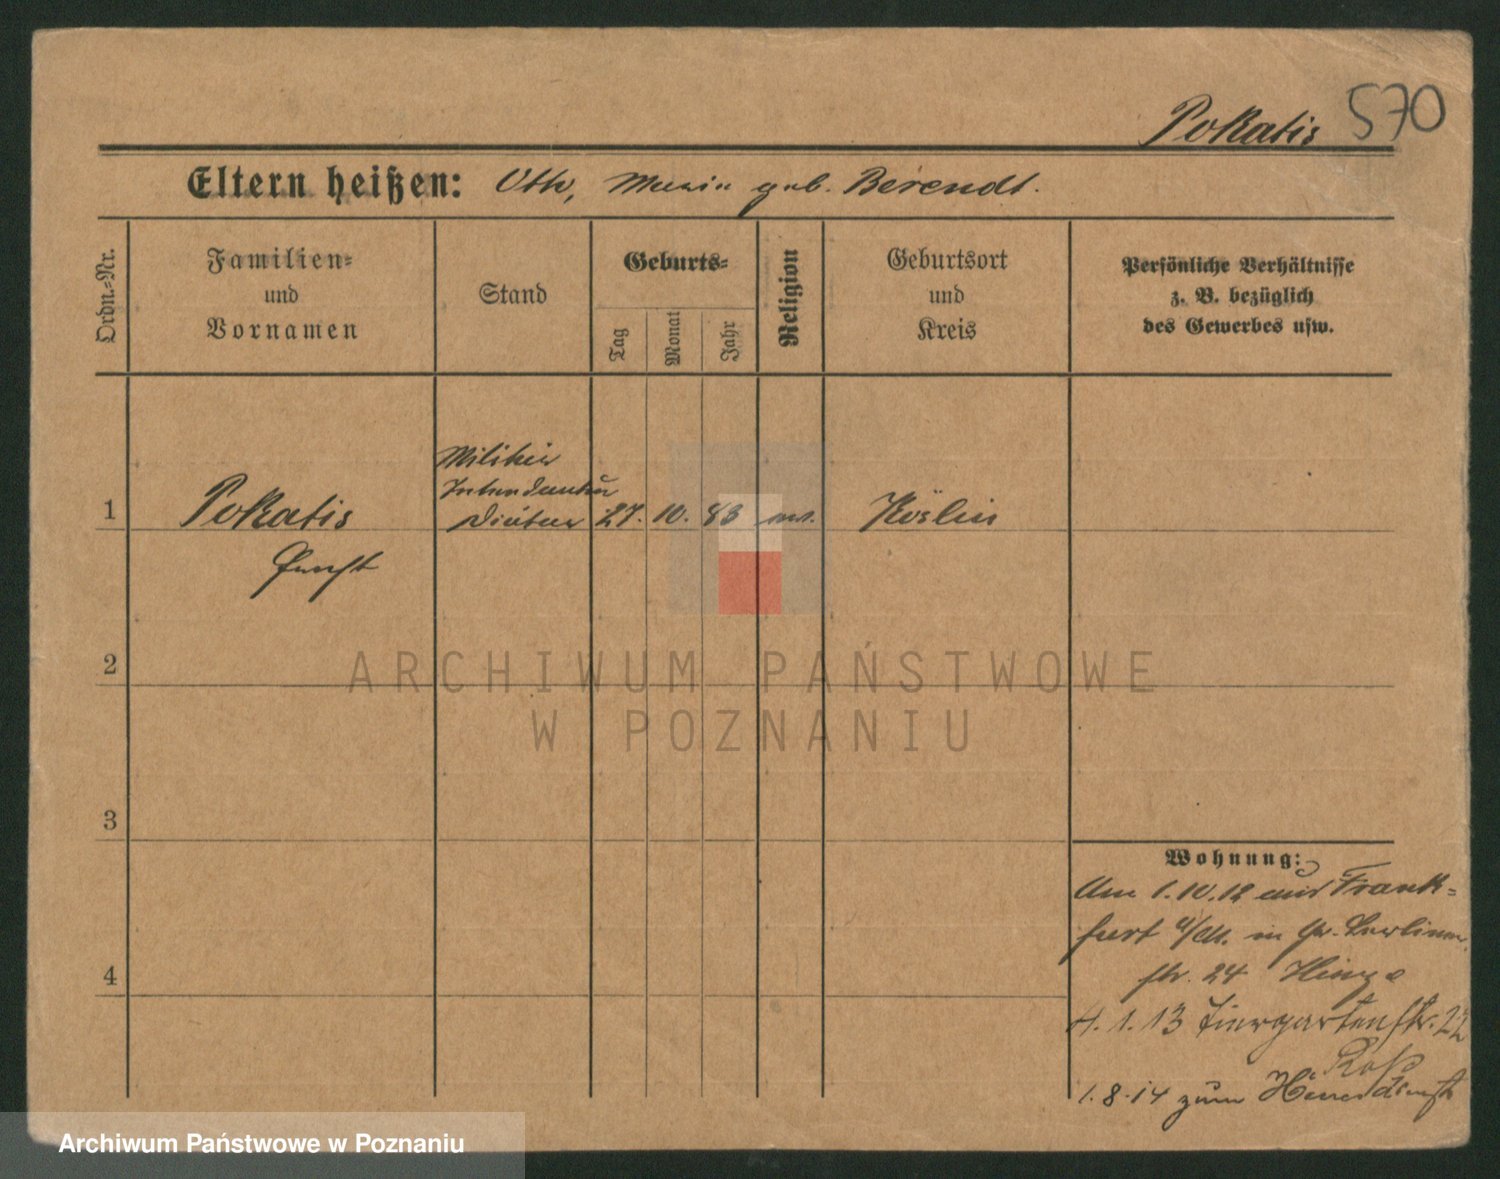 570
Pokatis
Eltern heißen: Otto, Maria geb. Berendt.
Ordn.-Nr.
Familien-
und
Vornamen
Stand
Geburts-
Tag
Monat
Jahr
Religion
Geburtsort
und
Kreis
Persönliche Verhältnisse
z. B. bezüglich
des Gewerbes usw.
1
Pokatis
Ernst
Militär
Intendantur
Diätar
27.
10.
83
Köslin
2
ARCHIWUM PAŃSTWOWE
W POZNANIU
3
4
Wohnung:
Am 1.10.12 aus Frank-
furt a/M. in Gr. Berliner
str. 24
4.1.13 Tiergartenstr. 22
1.8.14 zum Heeresdienst
Archiwum Państwowe w Poznaniu